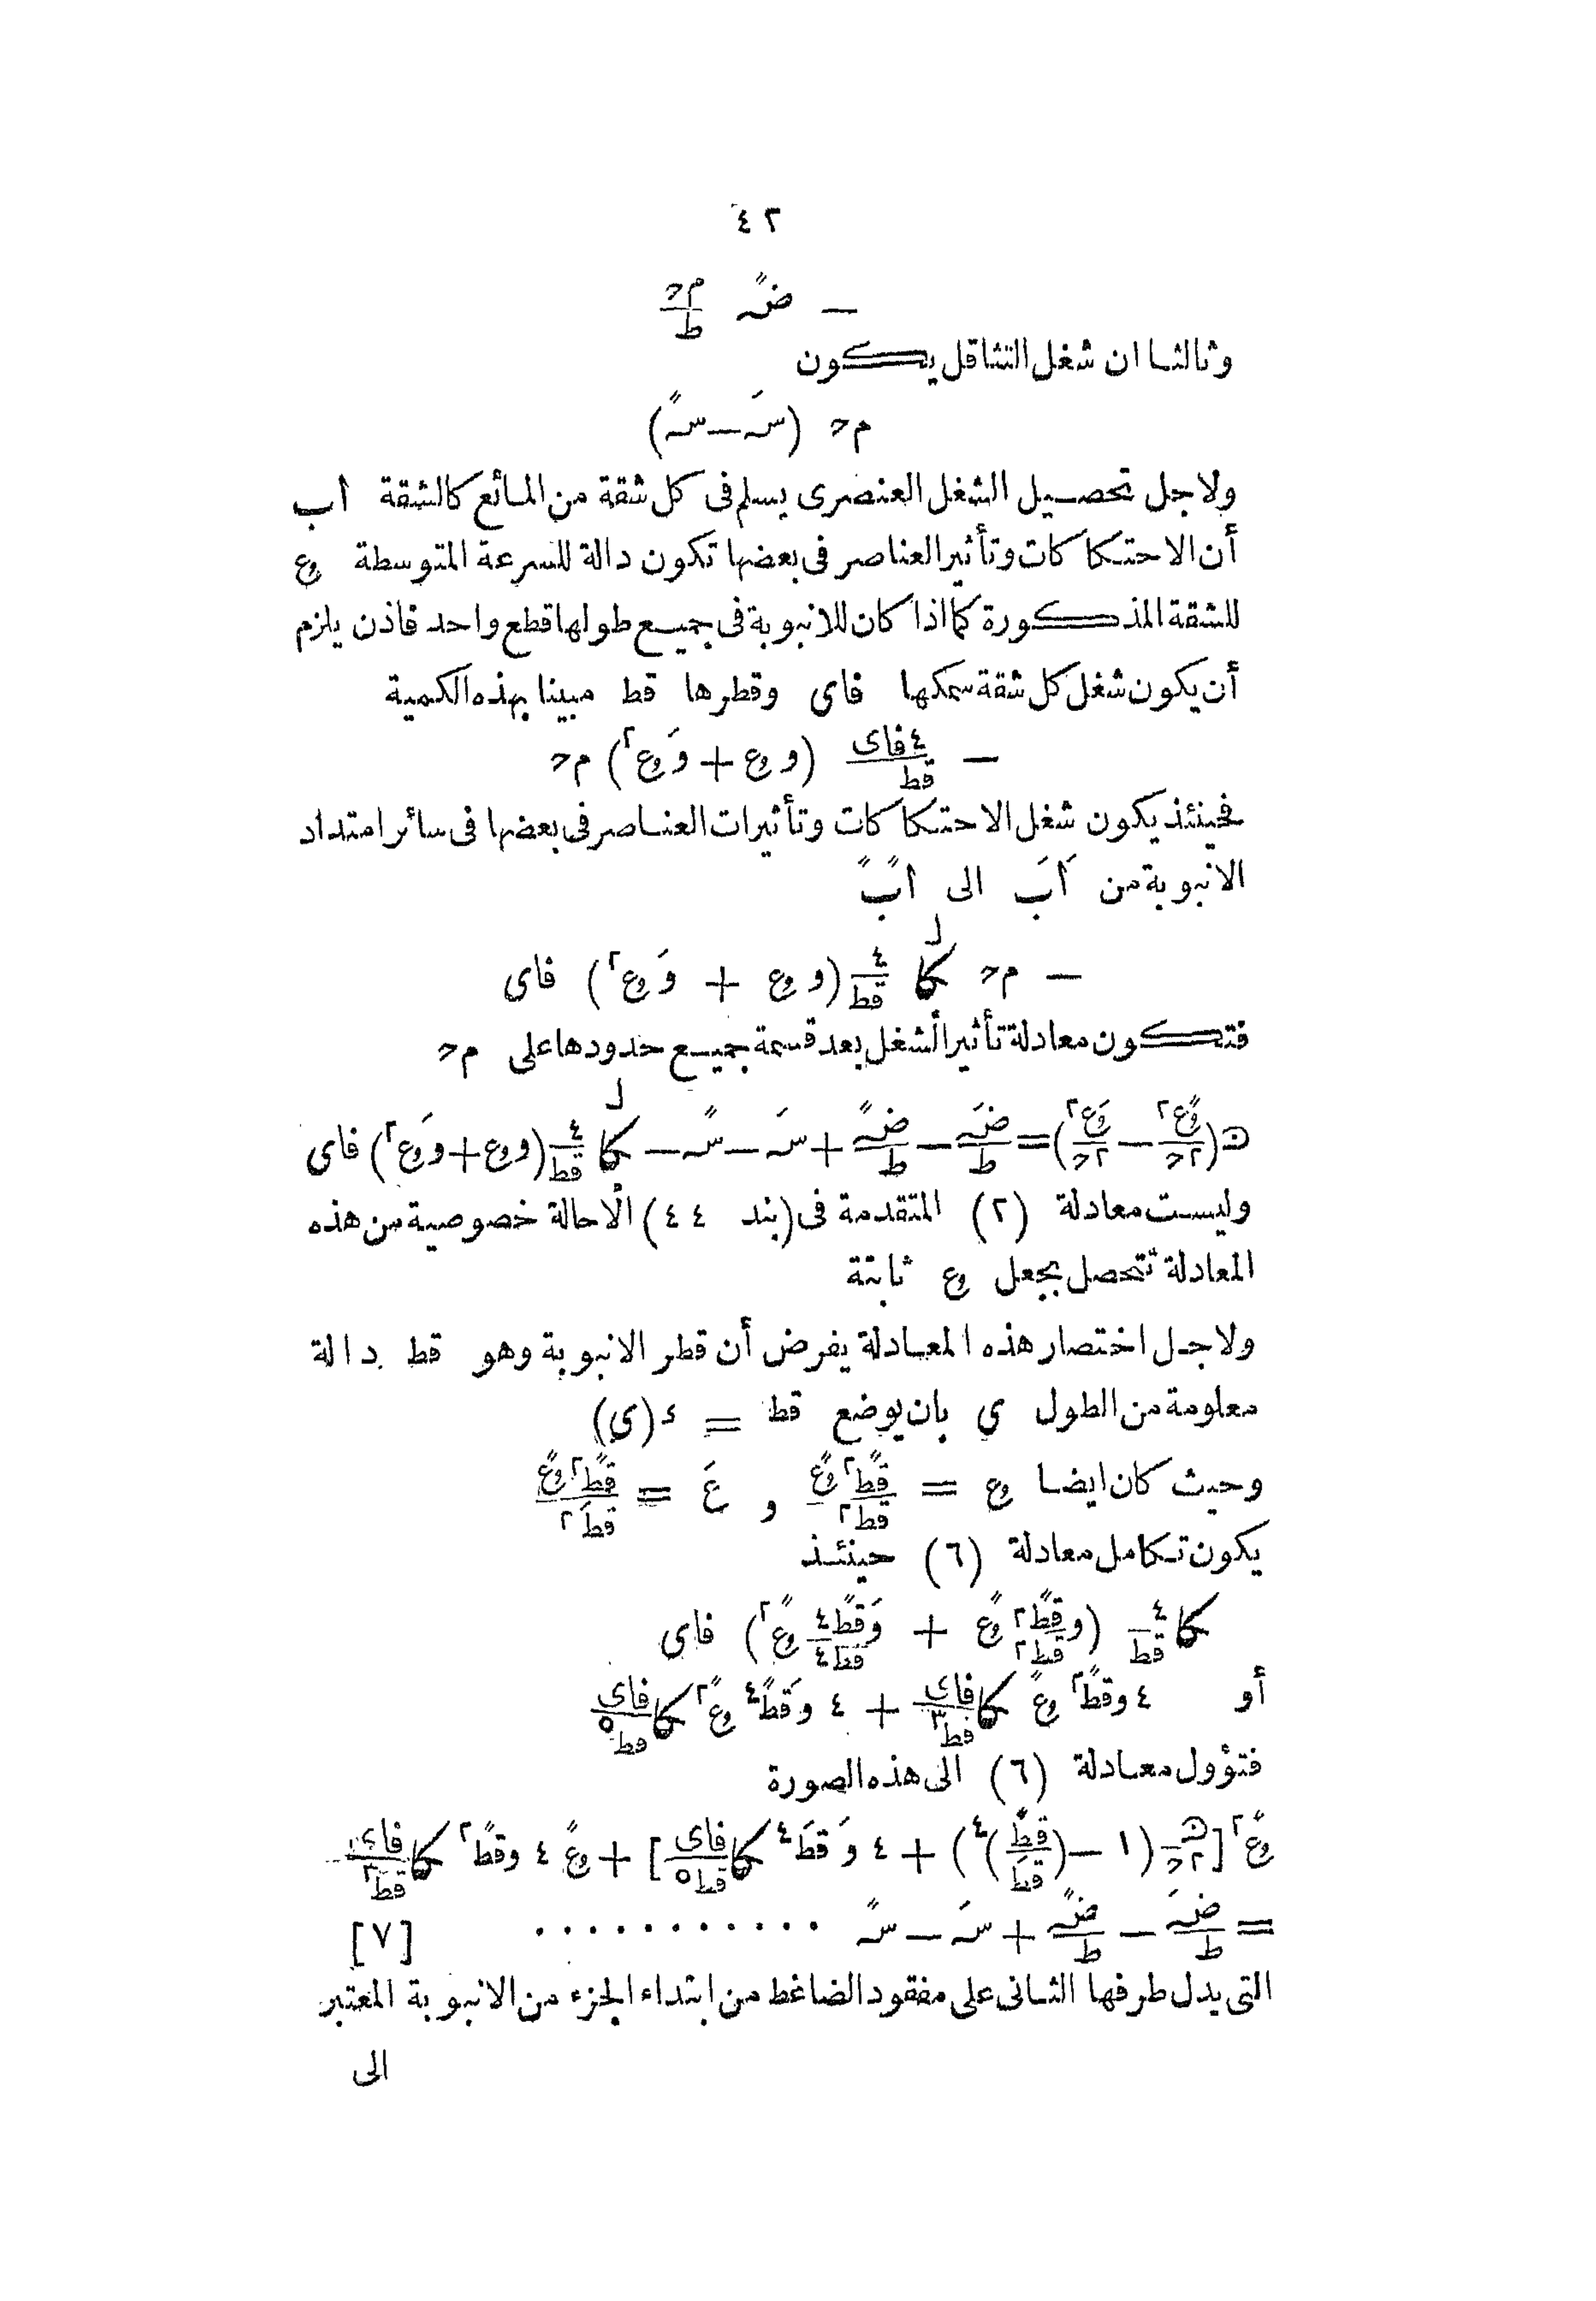 ٤٢
— ضً م‍ح/ط
وثالثا ان شغل التثاقل يكون
م‍ح (سَـ — سً)
ولاجل تحصيل الشغل العنصرى يسلم فى كل شقة من المائع كالشقة اب
أن الاحتكاكات وتأثير العناصر فى بعضها تكون دالة للسرعة المتوسطة وع
للشقة المذكورة كما اذا كان للانبوبة فى جميع طولها قطع واحد فاذن يلزم
أن يكون شغل كل شقة سمكها فاى وقطرها قط مبينا بهذه الكمية
— ٤فاى/قط (و وع + وَ وع٢) م‍ح
فحينئذ يكون شغل الاحتكاكات وتأثيرات العناصر فى بعضها فى سائر امتداد
الانبوبة من اَبَ الى اًبً
— م‍ح كا ل ٤/قط (و وع + وَ وع٢) فاى
فتكون معادلة تأثير الشغل بعد قسمة جميع حدودها على م‍ح
ھ(وعً٢/٢ح — وعَ٢/٢ح) = ضَ/ط — ضً/ط + سَـ — سً — كا ل ٤/قط (و وع + وَ وع٢) فاى
وليست معادلة (٢) المتقدمة فى (بند ٤٤) الاحالة خصوصية من هذه
المعادلة تتحصل بجعل وع ثابتة
ولاجل اختصار هذه المعادلة يفرض أن قطر الانبوبة وهو قط دالة
معلومة من الطول ي بان يوضع قط = ء(ي)
وحيث كان ايضا وع = قطً٢ وعً/قط٢ و عَ = قطً٢ وعً/قطَ٢
يكون تكامل معادلة (٦) حينئذ
كا ٤/قط (و قطً٢/قط٢ وعً + وَ قطً٤/قط٤ وعً٢) فاى
أو ٤ و قطً٢ وعً كا فاى/قط٣ + ٤ وَ قطً٤ وعً٢ كا فاى/قط٥
فتؤول معادلة (٦) الى هذه الصورة
وعً٢ [ھ/٢ح (١ — (قطً/قطَ)٤) + ٤ وَ قطَ٤ كا فاى/قط٥] + وعً ٤ و قطً٢ كا فاى/قط٣
= ضَ/ط — ضً/ط + سَـ — سً ........... [٧]
التى يدل طرفها الثانى على مفقود الضاغط من ابتداء الجزء من الانبوبة المعتبر
الى